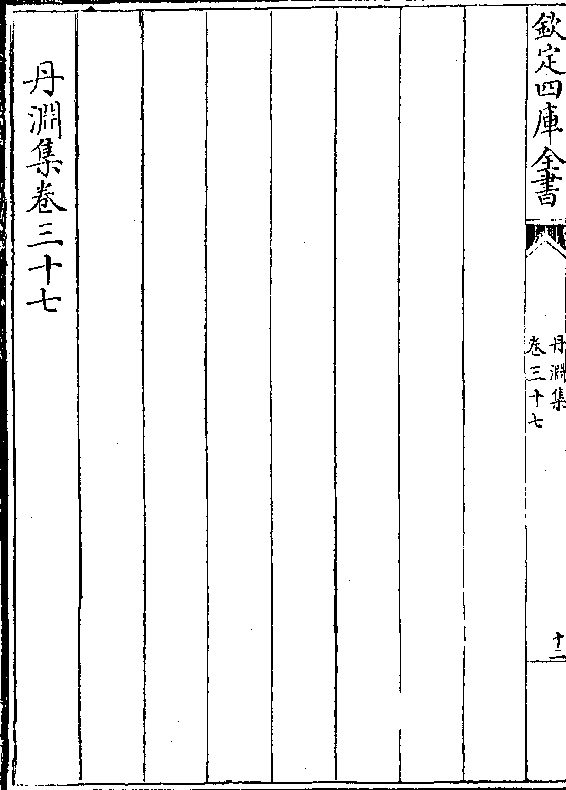 欽定四庫全書
丹淵集
卷三十七
十二
丹淵集卷三十七